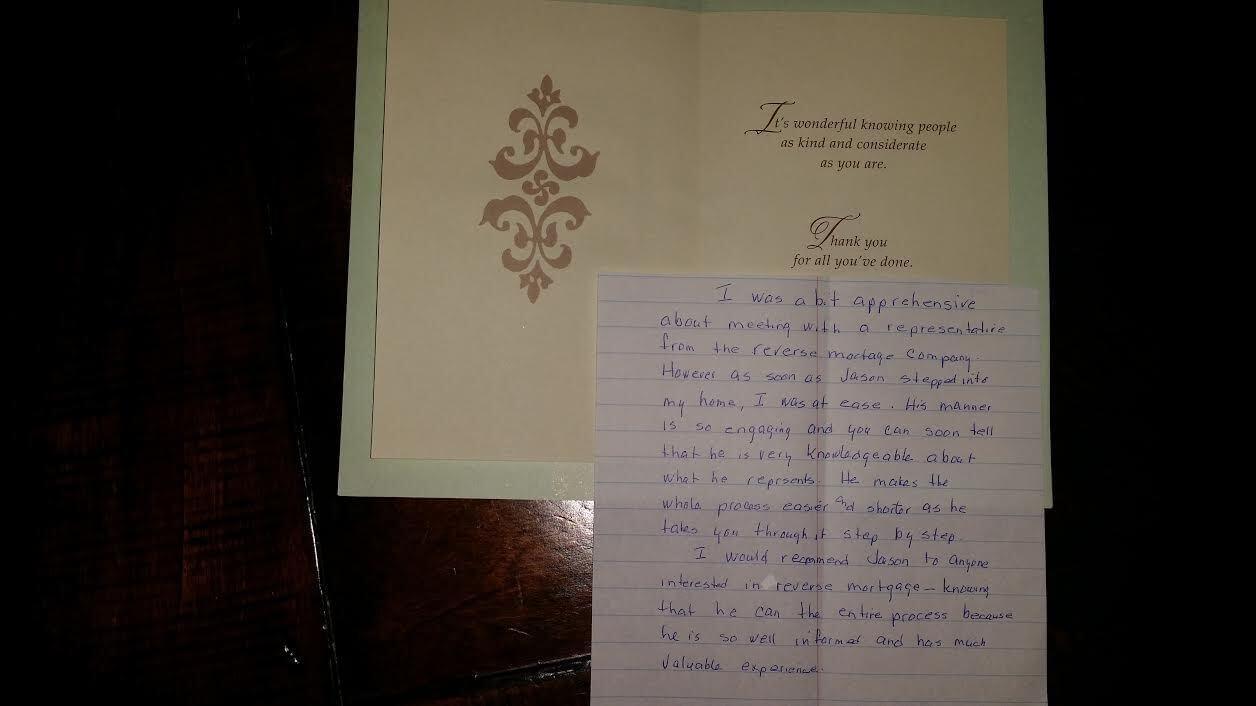 It's wonderful knowing people
as kind and considerate
as you are.
Thank you
for all you've done.
I was a bit apprehensive
about meeting with a representative
from the reverse mortage Company.
However as soon as Jason stepped into
my home, I was at ease. His manner
is so engaging and you can soon tell
that he is very knowledgeable about
what he reprsents. He makes the
whole process easier and shorter as he
takes you through it step by step.
I would recmmend Jason to anyone
interested in reverse mortgage - knowing
that he can the entire process because
he is so well informed and has much
valuable experience.